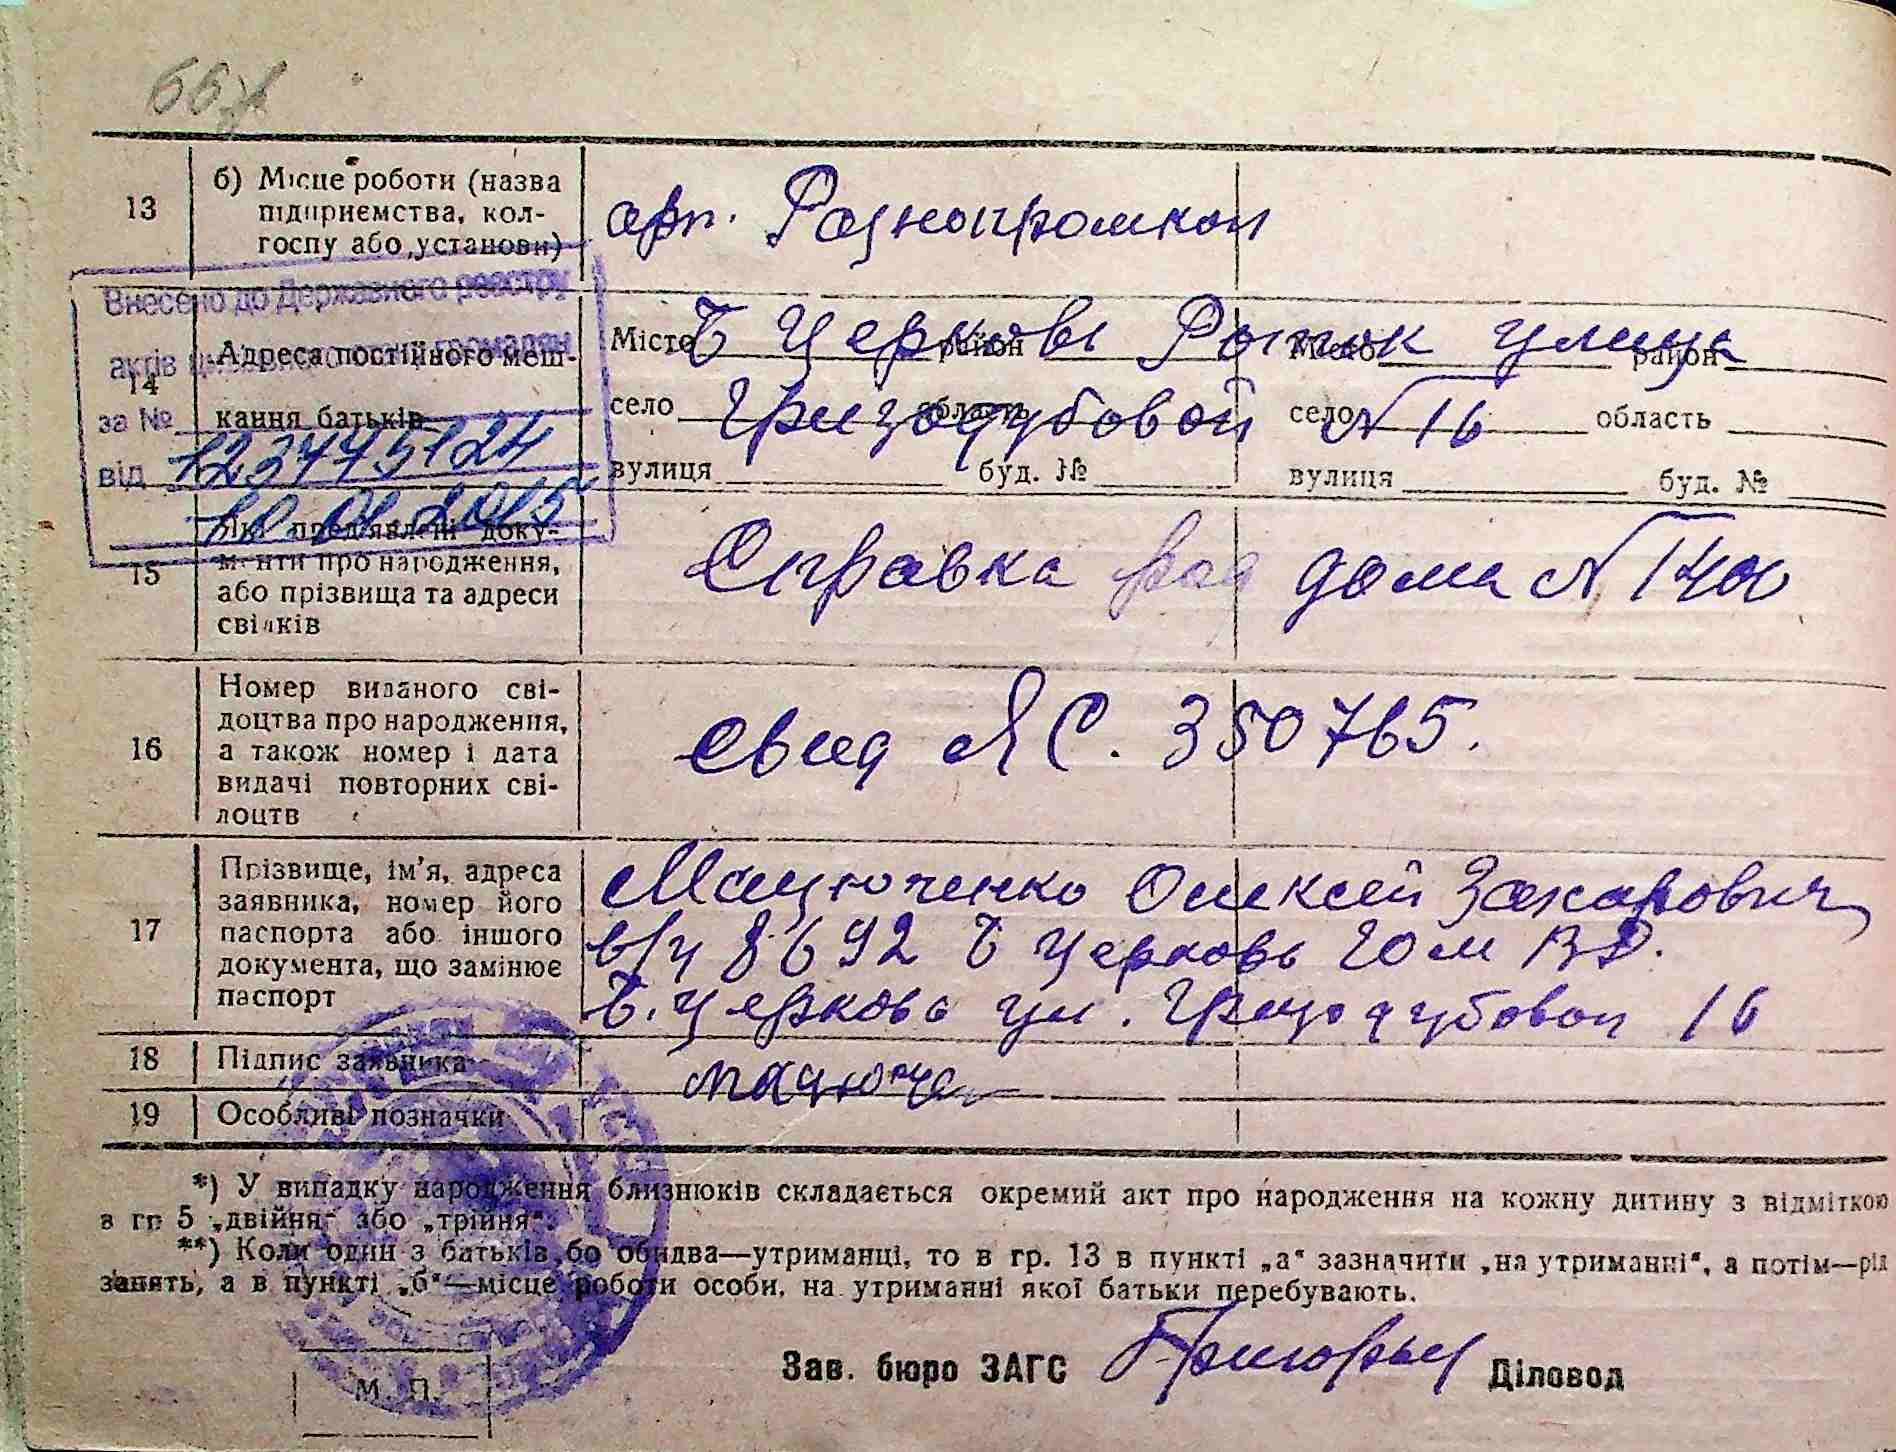 13
б) Місце роботи (назва
підприємства, кол-
госпу або установи)
арт. Рознопромкоп
Внесено до Державного реєстру
актів цивільного стану громадян
за № 1237745124
від
2015
14
Адреса постійного меш-
кання батьків
Місто район Місто район
Б Церковь Роток улица
село область село область
Гризодубовой № 16
вулиця буд. № вулиця буд. №
15
Які пред'явлені доку-
менти про народження,
або прізвища та адреси
свідків
Справка род дома № 1400
16
Номер виданого сві-
доцтва про народження,
а також номер і дата
видачі повторних сві-
доцтв
свид ЯС. 350765.
17
Прізвище, ім'я, адреса
заявника, номер його
паспорта або іншого
документа, що замінює
паспорт
Мацюченко Олексей Захарович
в/ч 8692 Б Церковь
Б. Церковь ул. Гризодубовой 16
18
Підпис заявника
Мацюче
19
Особливі позначки
*) У випадку народження близнюків складається окремий акт про народження на кожну дитину з відміткою
в гр 5 „двійня“ або „трійня“.
**) Коли один з батьків або обидва—утриманці, то в гр. 13 в пункті „а“ зазначити „на утриманні“, а потім—рід
занять, а в пункті „б“—місце роботи особи, на утриманні якої батьки перебувають.
Зав. бюро ЗАГС Діловод
М. П.